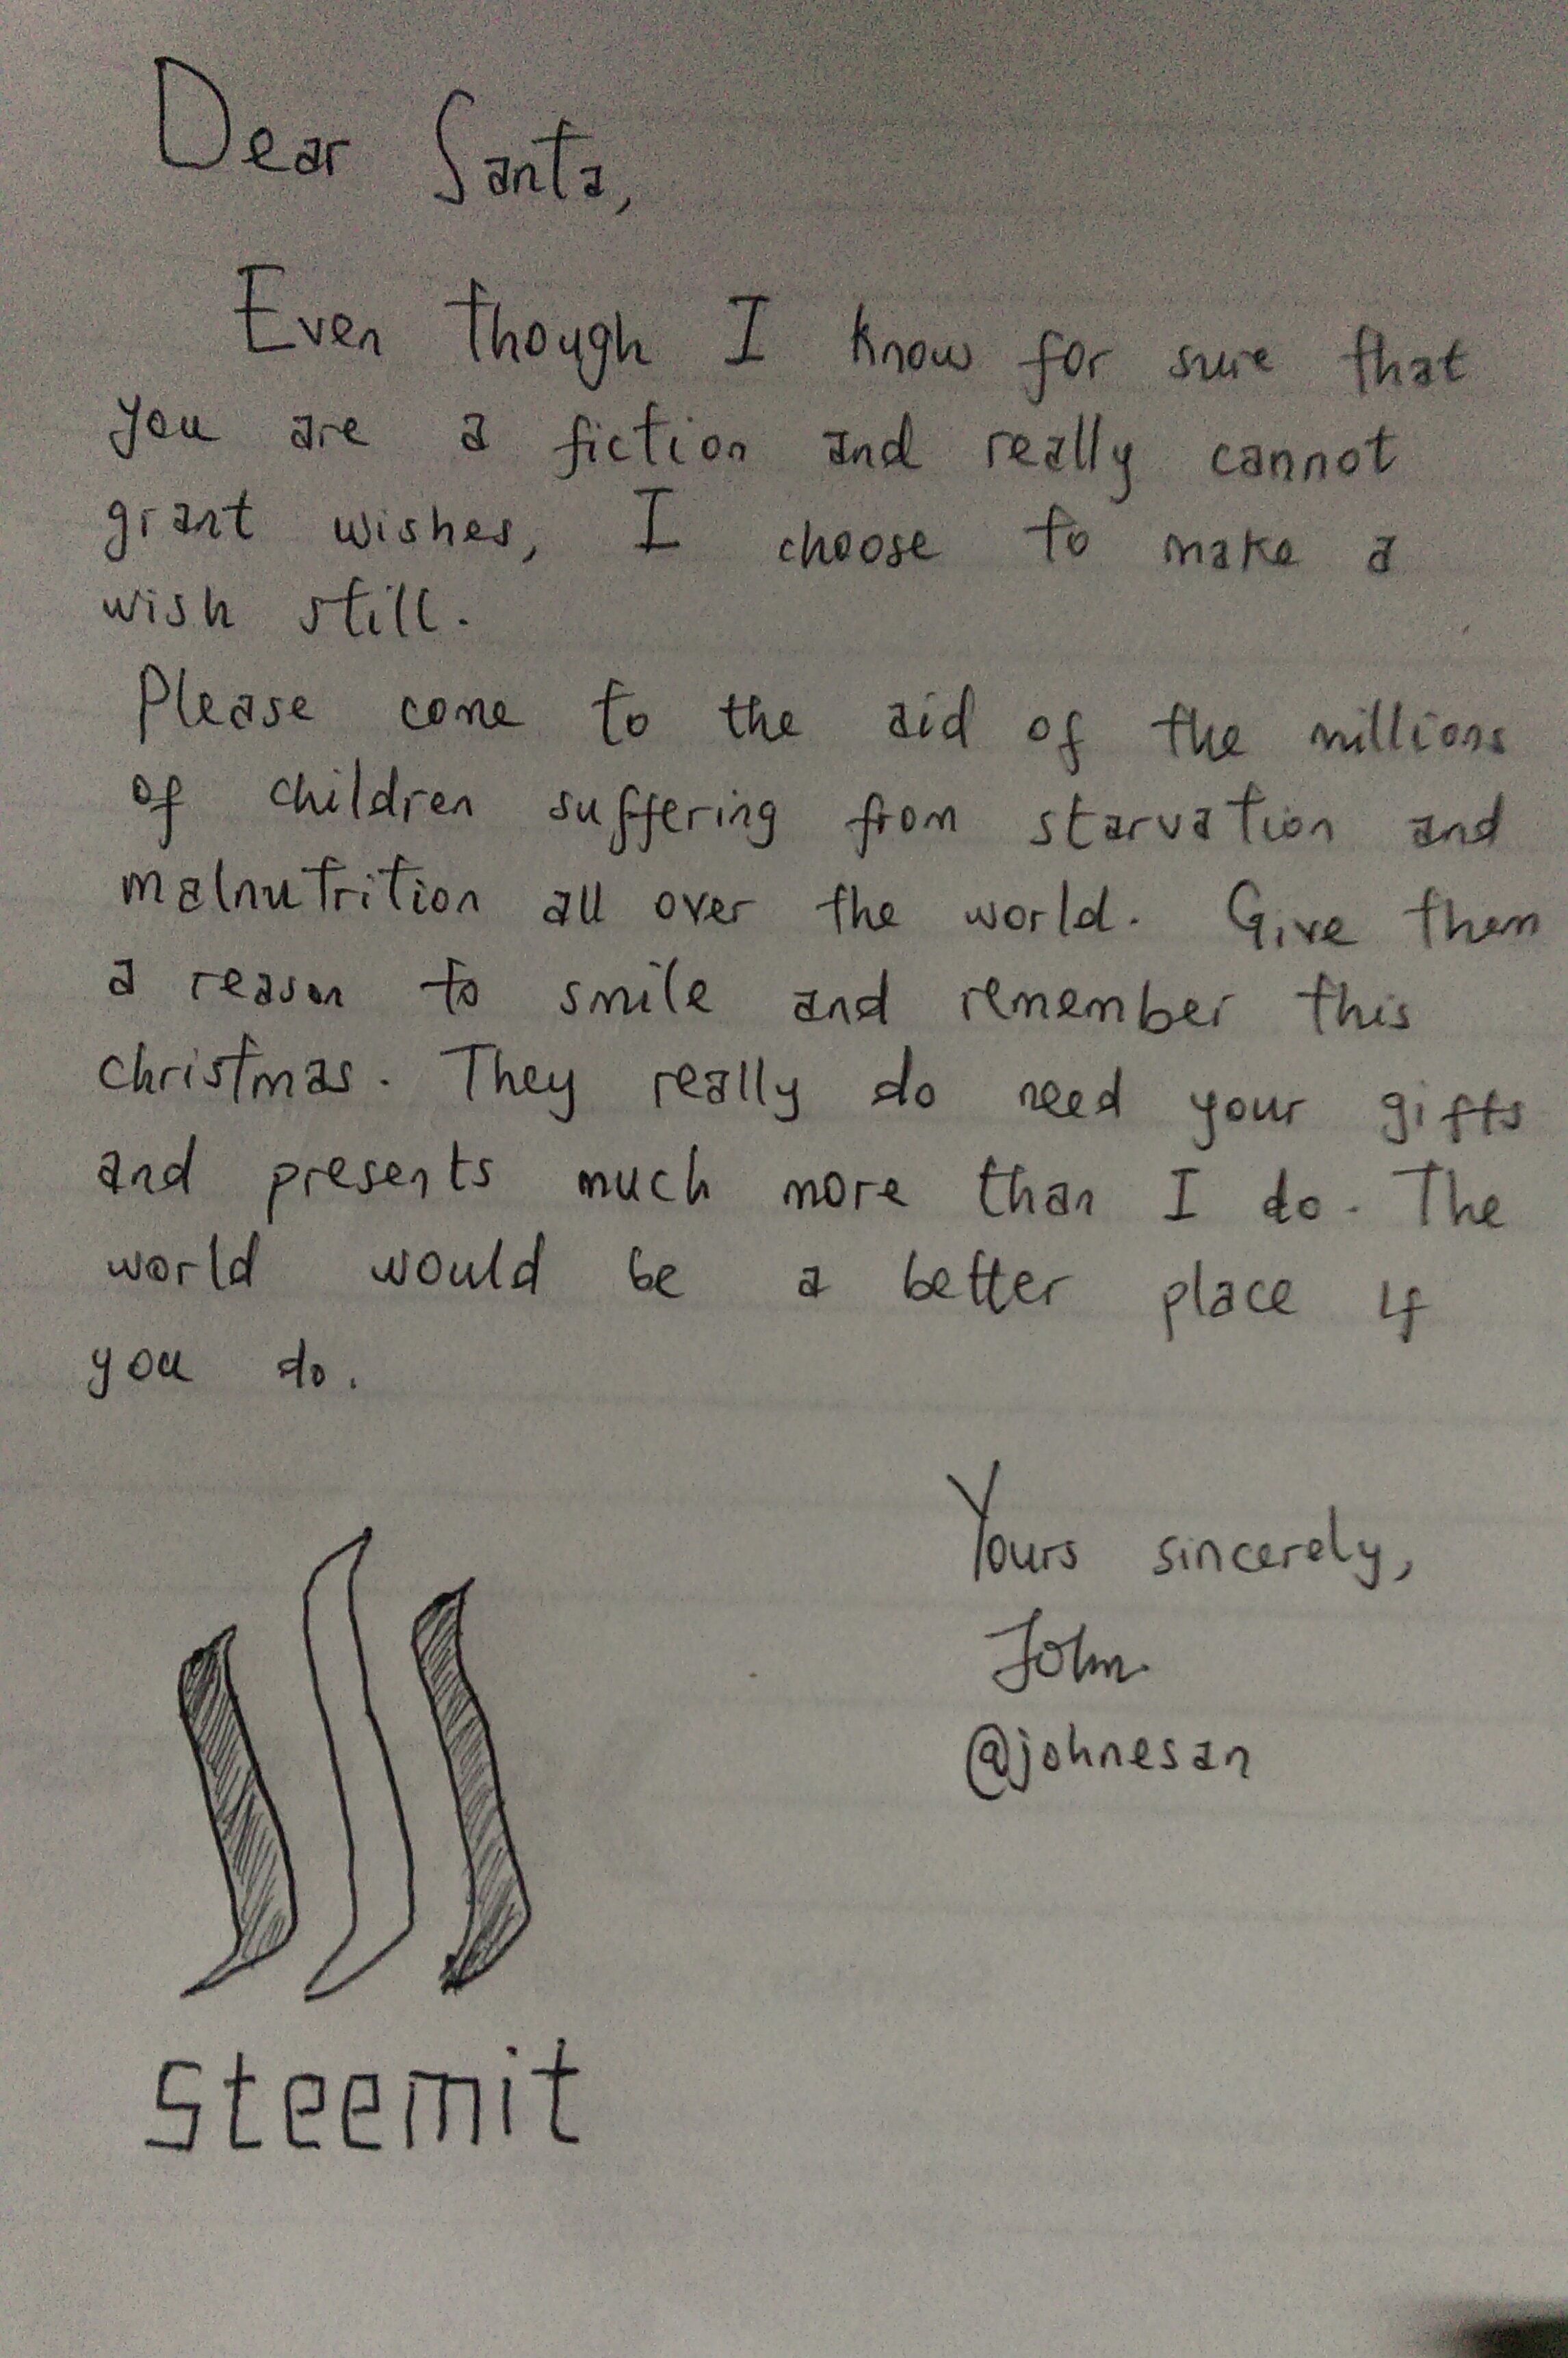 Dear Santa,
Even though I know for sure that
you are a fiction and really cannot
grant wishes, I choose to make a
wish still.
Please come to the aid of the millions
of children suffering from starvation and
malnutrition all over the world. Give them
a reason to smile and remember this
christmas. They really do need your gifts
and presents much more than I do. The
world would be a better place if
you do.
Yours sincerely,
John
@johnesan
steemit